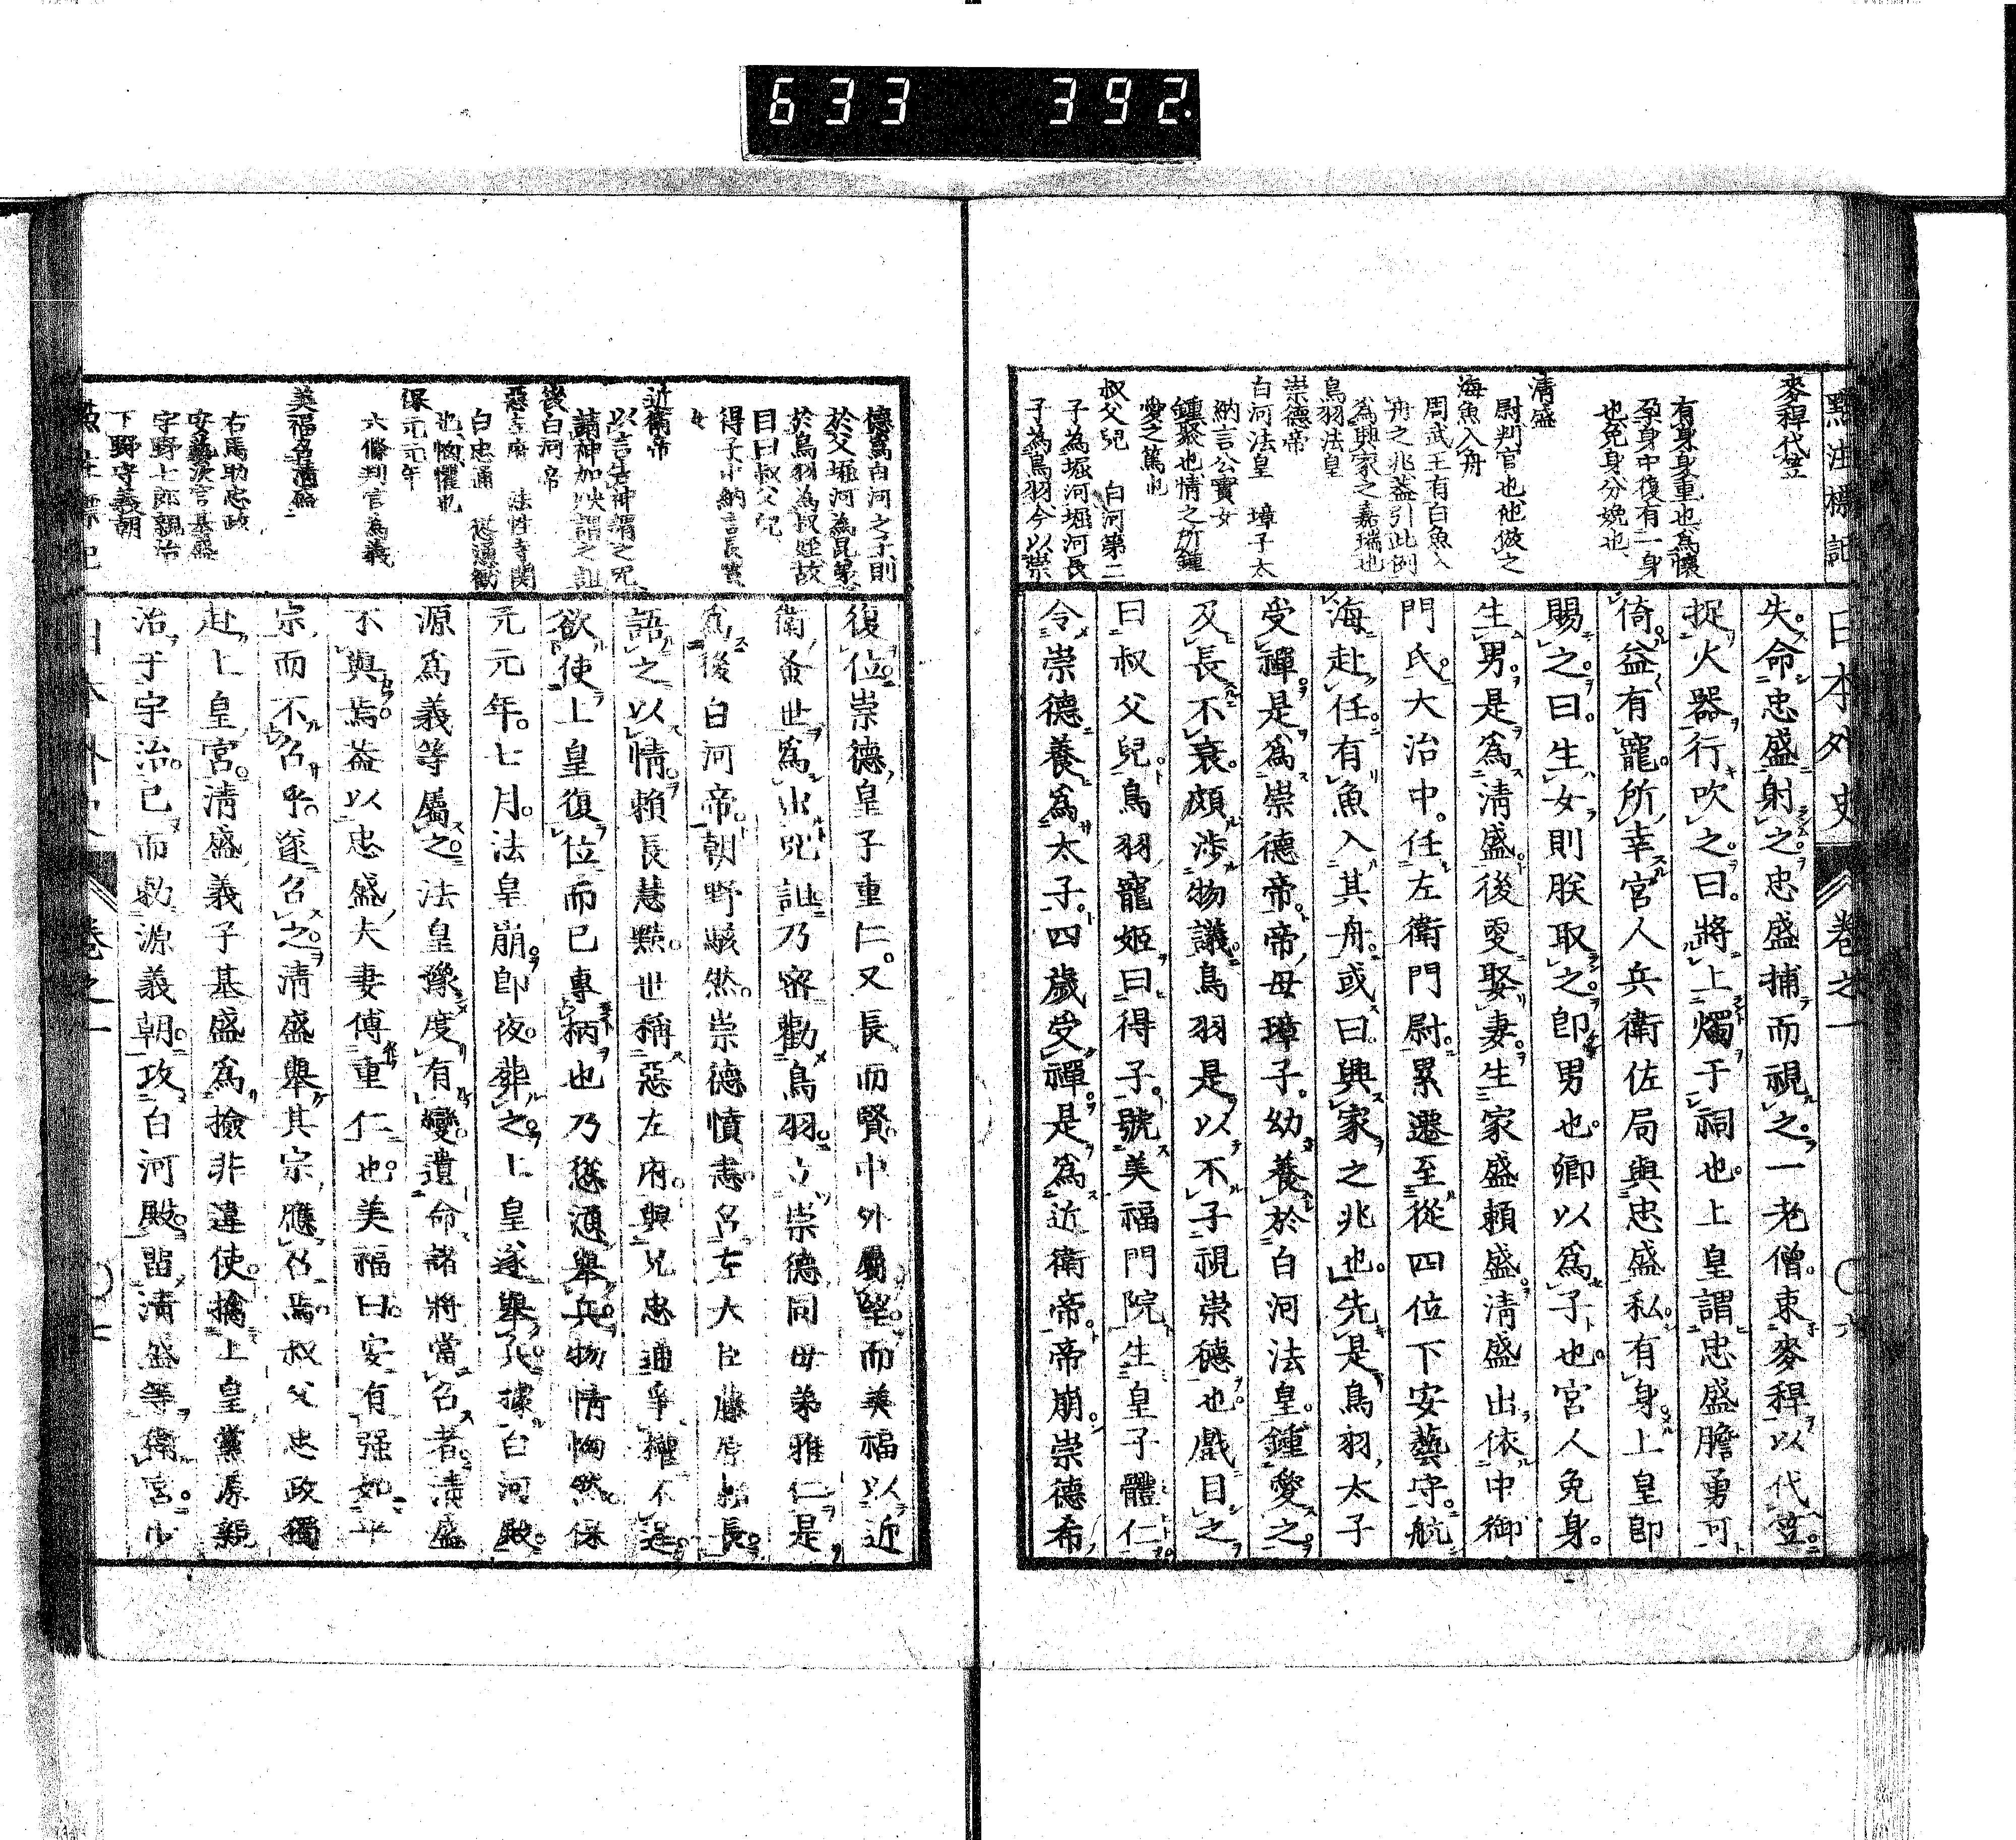 633 392
點注標記
日本外史 卷之一 〇六
麥稈代笠
有身身重也爲懷
孕身中復有一身
也免身分娩也
淸盛
尉判官也他倣之
海魚入舟
周武王有白魚入
舟之兆葢引此例
爲興家之嘉瑞也
鳥羽法皇
崇德帝
白河法皇 璋子太
納言公實女
鍾聚也情之所鍾
愛之篤也
叔父兒 白河第二
子爲堀河堀河長
子爲鳥羽今以崇
失命忠盛射之忠盛捕而視之一老僧束麥稈以代笠
捉火器行吹之曰將上燭于祠也上皇謂忠盛膽勇可
倚益有寵所幸宮人兵衛佐局與忠盛私有身上皇卽
賜之曰生女則朕取之卽男也卿以爲子也宮人免身
生男是爲淸盛後更娶妻生家盛賴盛淸盛出依中御
門氏大治中任左衛門尉累遷至從四位下安藝守航
海赴任有魚入其舟或曰興家之兆也先是鳥羽太子
受禪是爲崇德帝帝母璋子幼養於白河法皇鍾愛之
及長不衰頗涉物議鳥羽是以不子視崇德也戲目之
曰叔父兒鳥羽寵姬曰得子號美福門院生皇子體仁
令崇德養爲太子四歲受禪是爲近衛帝帝崩崇德希
德爲白河之子則
於父堀河爲昆弟
於鳥羽爲叔姪故
目曰叔父兒
得子中納言長實
女
近衛帝
以言告神謂之咒
請神加殃謂之詛
後白河帝
惡左府 法性寺関
白忠通 慫慂勸
也恟懼也
保元元年
六條判官爲義
美福召淸盛
右馬助忠政
安藝次官基盛
宇野七郎親治
下野守義朝
復位崇德皇子重仁又長而賢中外屬望而美福以近
衛蚤世爲出咒詛乃密勸鳥羽立崇德同母弟雅仁是
爲後白河帝朝野駭然崇德憤恚召左大臣藤原賴長
語之以情賴長慧黠世稱惡左府與兄忠通爭權不逞
欲使上皇復位而已專柄也乃慫慂舉兵物情恟然保
元元年七月法皇崩卽夜葬之上皇遂舉兵據白河殿
源爲義等屬之法皇豫度有變遺命諸將當召者淸盛
不與焉葢以忠盛夫妻傅重仁也美福曰安有强如平
宗而不召乎遂召之淸盛舉其宗應召焉叔父忠政獨
赴上皇宮淸盛義子基盛爲撿非違使擒上皇黨源親
治于宇治已而勑源義朝攻白河殿留淸盛等衛宮少